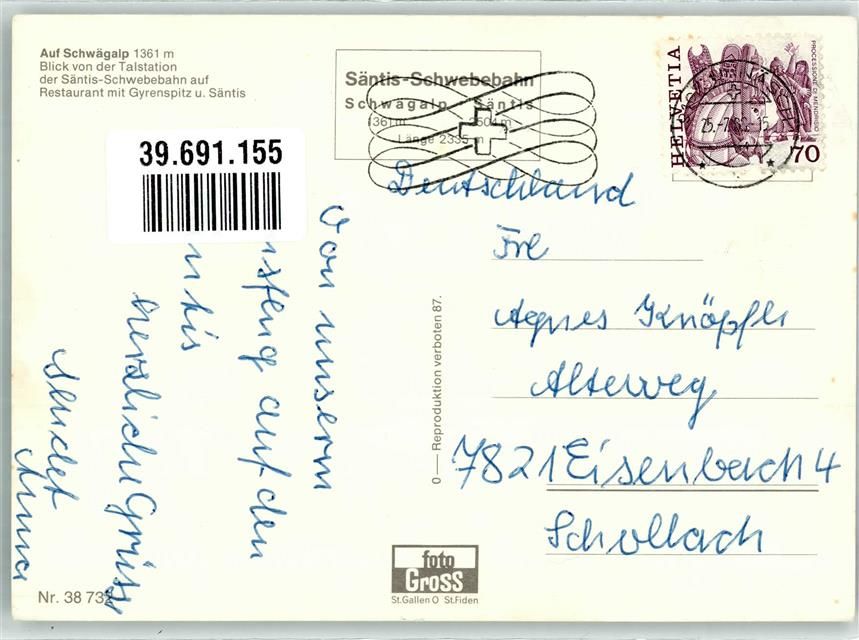 Auf Schwägalp 1361 m
Blick von der Talstation
der Säntis-Schwebebahn auf
Restaurant mit Gyrenspitz u. Säntis
39.691.155
Säntis-Schwebebahn
Schwägalp - Säntis
1361 m 2504 m
Länge 2335 m
HELVETIA
PROCESSIONE DI MENDRISIO
70
Von unserm
auf den
ntis
herzliche Grüsse
sendet
Anna
Deutschland
Frl
Agnes Knöpfle
Alterweg
7821 Eisenbach 4
Schollach
0 — Reproduktion verboten 87.
foto
Gross
St.Gallen O St.Fiden
Nr. 38 732